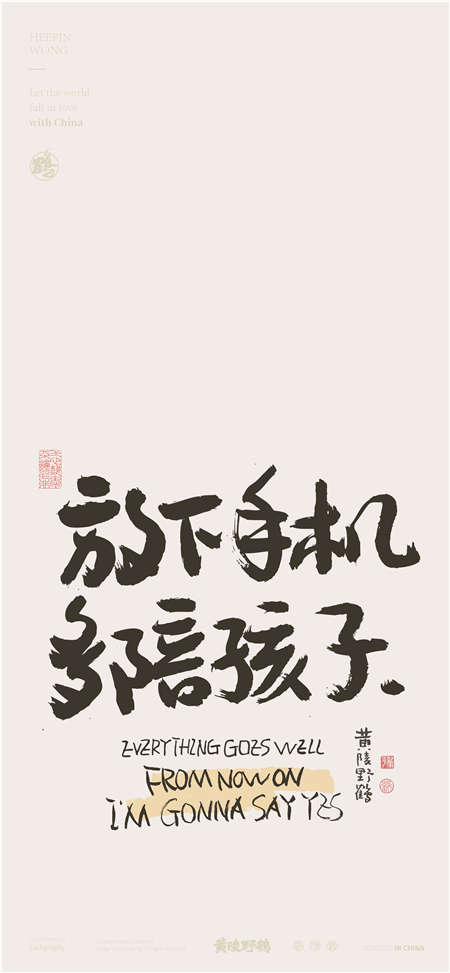 HEEPIN
WONG
Let the world
fall in love
with China
鹤
放下手机
多陪孩子.
EVERYTHING GOES WELL
FROM NOW ON
I'M GONNA SAY YES
黄陵野鹤
黄陵野鹤
IN CHINA